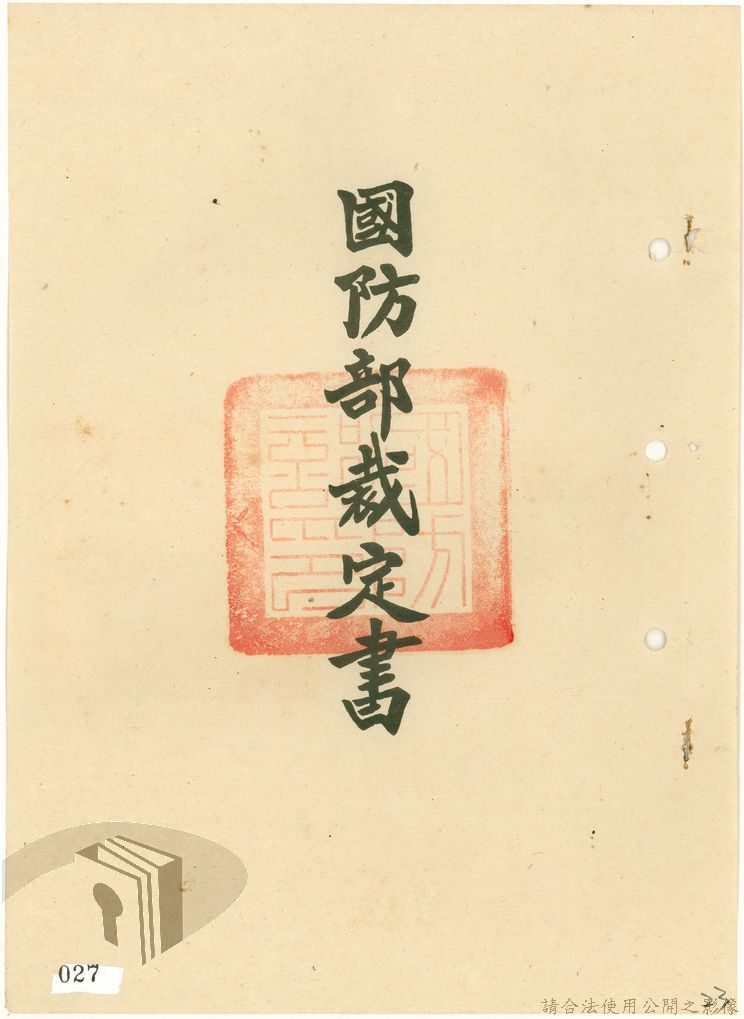 國防部裁定書
027
23
請合法使用公開之影像